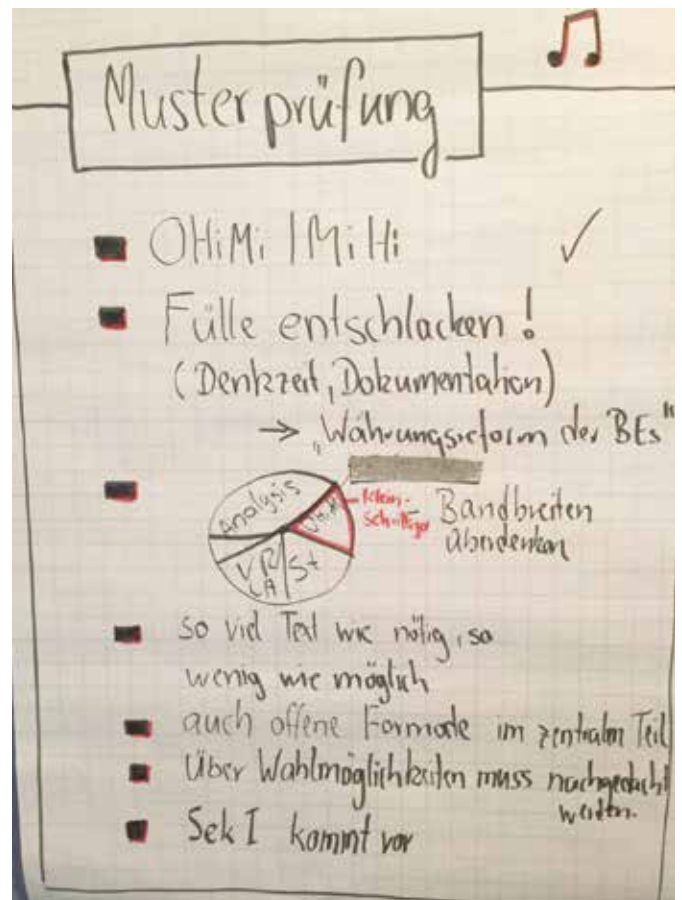 Musterprüfung
OHiMi | MiHi ✓
Fülle entschlacken!
(Denkzeit, Dokumentation)
→ „Währungsreform der BEs"
Analysis
OHiMi
klein-
schrittiger
VR/
LA
St
Bandbreiten
überdenken
so viel Text wie nötig, so
wenig wie möglich
auch offene Formate im zentralen Teil
Über Wahlmöglichkeiten muss nachgedacht
werden.
Sek I kommt vor